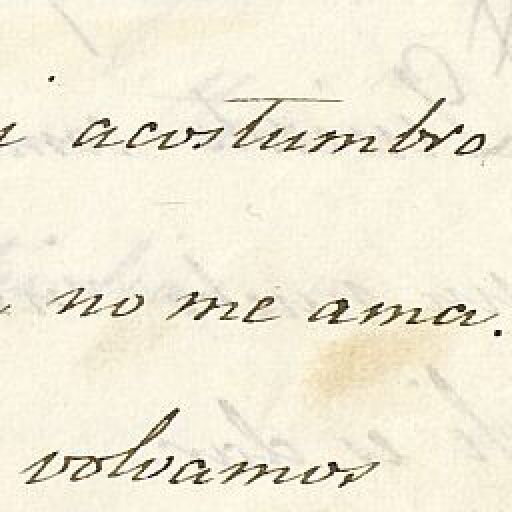 i acostumbro
no me ama.
volvamos